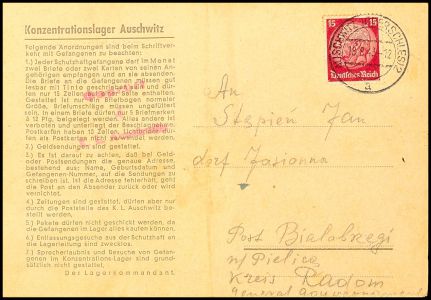 Konzentrationslager Auschwitz
Folgende Anordnungen sind beim Schriftver-
kehr mit Gefangenen zu beachten:
1.) Jeder Schutzhaftgefangene darf im Monat
zwei Briefe oder zwei Karten von seinen An-
gehörigen empfangen und an sie absenden.
Die Briefe an die Gefangenen müssen gut
lesbar mit Tinte geschrieben sein und
dürfen nur 15 Zeilen auf einer Seite enthalten.
Gestattet ist nur ein Briefbogen normaler
Größe. Briefumschläge müssen ungefüttert
sein. In einem Briefe dürfen nur 5 Briefmarken
à 12 Pfg. beigelegt werden. Alles andere ist
verboten und unterliegt der Beschlagnahme.
Postkarten haben 10 Zeilen. Lichtbilder dürfen
als Postkarten nicht verwendet werden.
2.) Geldsendungen sind gestattet.
3.) Es ist darauf zu achten, daß bei Geld-
oder Postsendungen die genaue Adresse,
bestehend aus: Name, Geburtsdatum und
Gefangenen-Nummer, auf die Sendungen zu
schreiben ist. Ist die Adresse fehlerhaft, geht
die Post an den Absender zurück oder wird
vernichtet.
4.) Zeitungen sind gestattet, dürfen aber nur
durch die Poststelle des K. L. Auschwitz be-
stellt werden.
5.) Pakete dürfen nicht geschickt werden, da
die Gefangenen im Lager alles kaufen können.
6.) Entlassungsgesuche aus der Schutzhaft an
die Lagerleitung sind zwecklos.
7.) Sprecherlaubnis und Besuche von Gefan-
genen im Konzentrations-Lager sind grund-
sätzlich nicht gestattet.
Der Lagerkommandant.
15 15
Deutsches Reich
a
An
Stępien Jan
dorf Jasionna
Post Białobrzegi
n/ Pielica
Kreis Radom
General Gouvernement